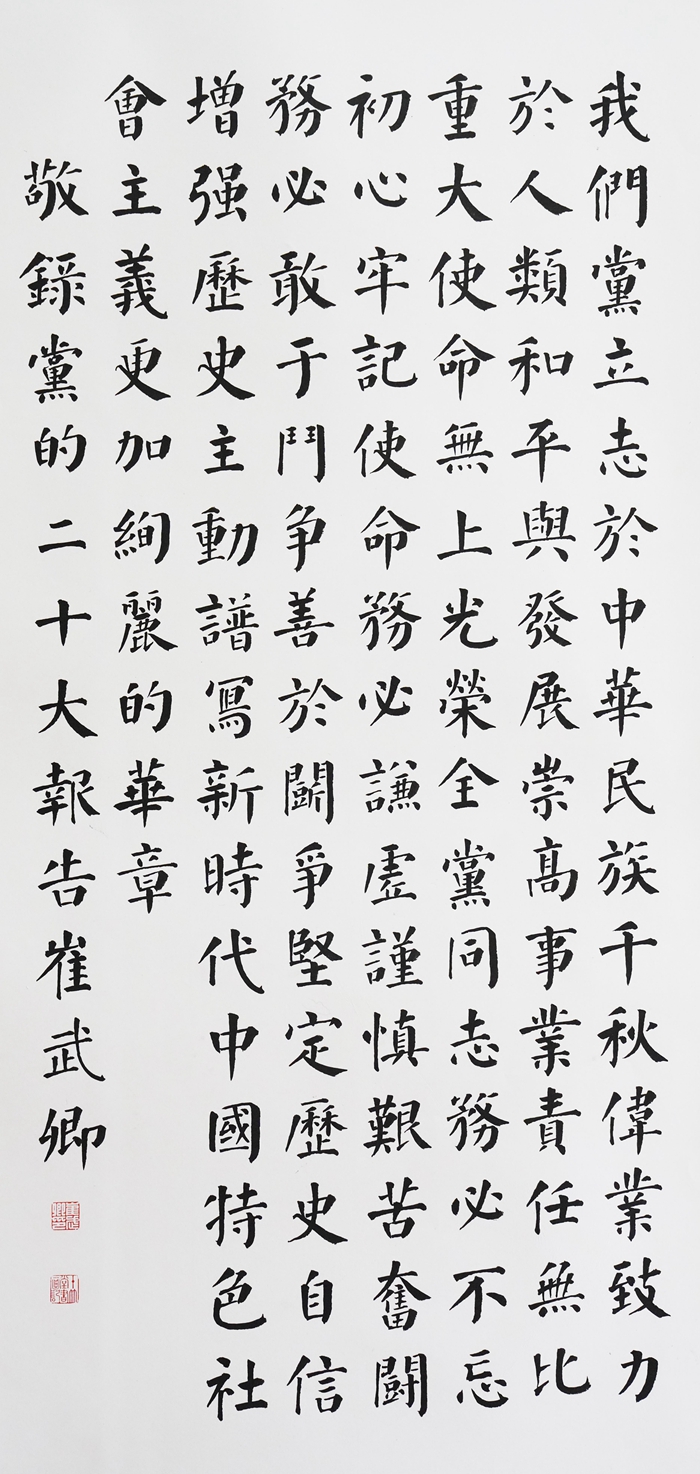 我們黨立志於中華民族千秋偉業致力
於人類和平與發展崇高事業責任無比
重大使命無上光榮全黨同志務必不忘
初心牢記使命務必謙虛謹慎艱苦奮闘
務必敢于鬥争善於闘爭堅定歷史自信
增强歷史主動譜寫新時代中國特色社
會主義更加絢麗的華章
敬錄黨的二十大報告崔武卿